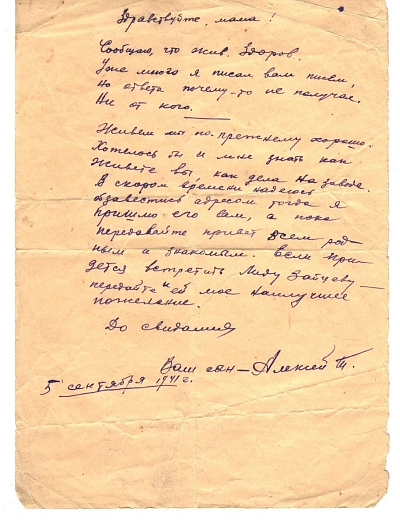 Здравствуйте, мама!
Сообщаю, что жив. Здоров.
Уже много я писал вам писем,
но ответа почему-то не получаю.
Ни от кого.
Живем мы по-прежнему хорошо.
Хотелось бы и мне знать как
живете вы, как дела на заводе.
В скором времени надеюсь
обзавестись адресом тогда я
пришлю его вам, а пока
передавайте привет всем род-
ным и знакомым. Если при-
дется встретить Лиду Зайцеву —
передайте ей мое наилучшее
пожелание.
До свидания
Ваш сын — Алексей Т.
5 сентября 1941 г.